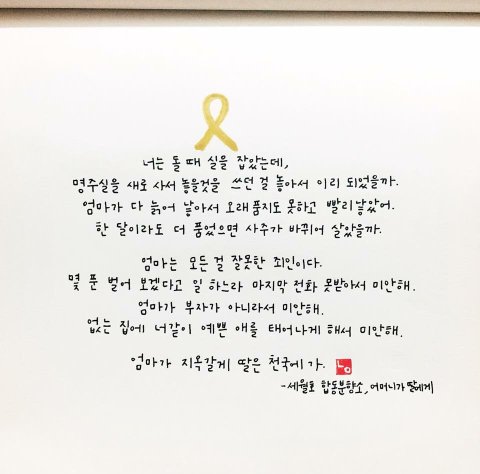 너는 돌 때 실을 잡았는데,
명주실을 새로 사서 놓을것을 쓰던 걸 놓아서 이리 되었을까.
엄마가 다 늙어 낳아서 오래 품지도 못하고 빨리 낳았어.
한 달이라도 더 품었으면 사주가 바뀌어 살았을까.
엄마는 모든걸 잘못한 죄인이다.
몇 푼 벌어 보겠다고 일 하느라 마지막 전화 못받아서 미안해.
엄마가 부자가 아니라서 미안해.
없는 집에 너같이 예쁜 애를 태어나게 해서 미안해.
엄마가 지옥갈게 딸은 천국에 가.
-세월호 합동분향소, 어머니가 딸에게